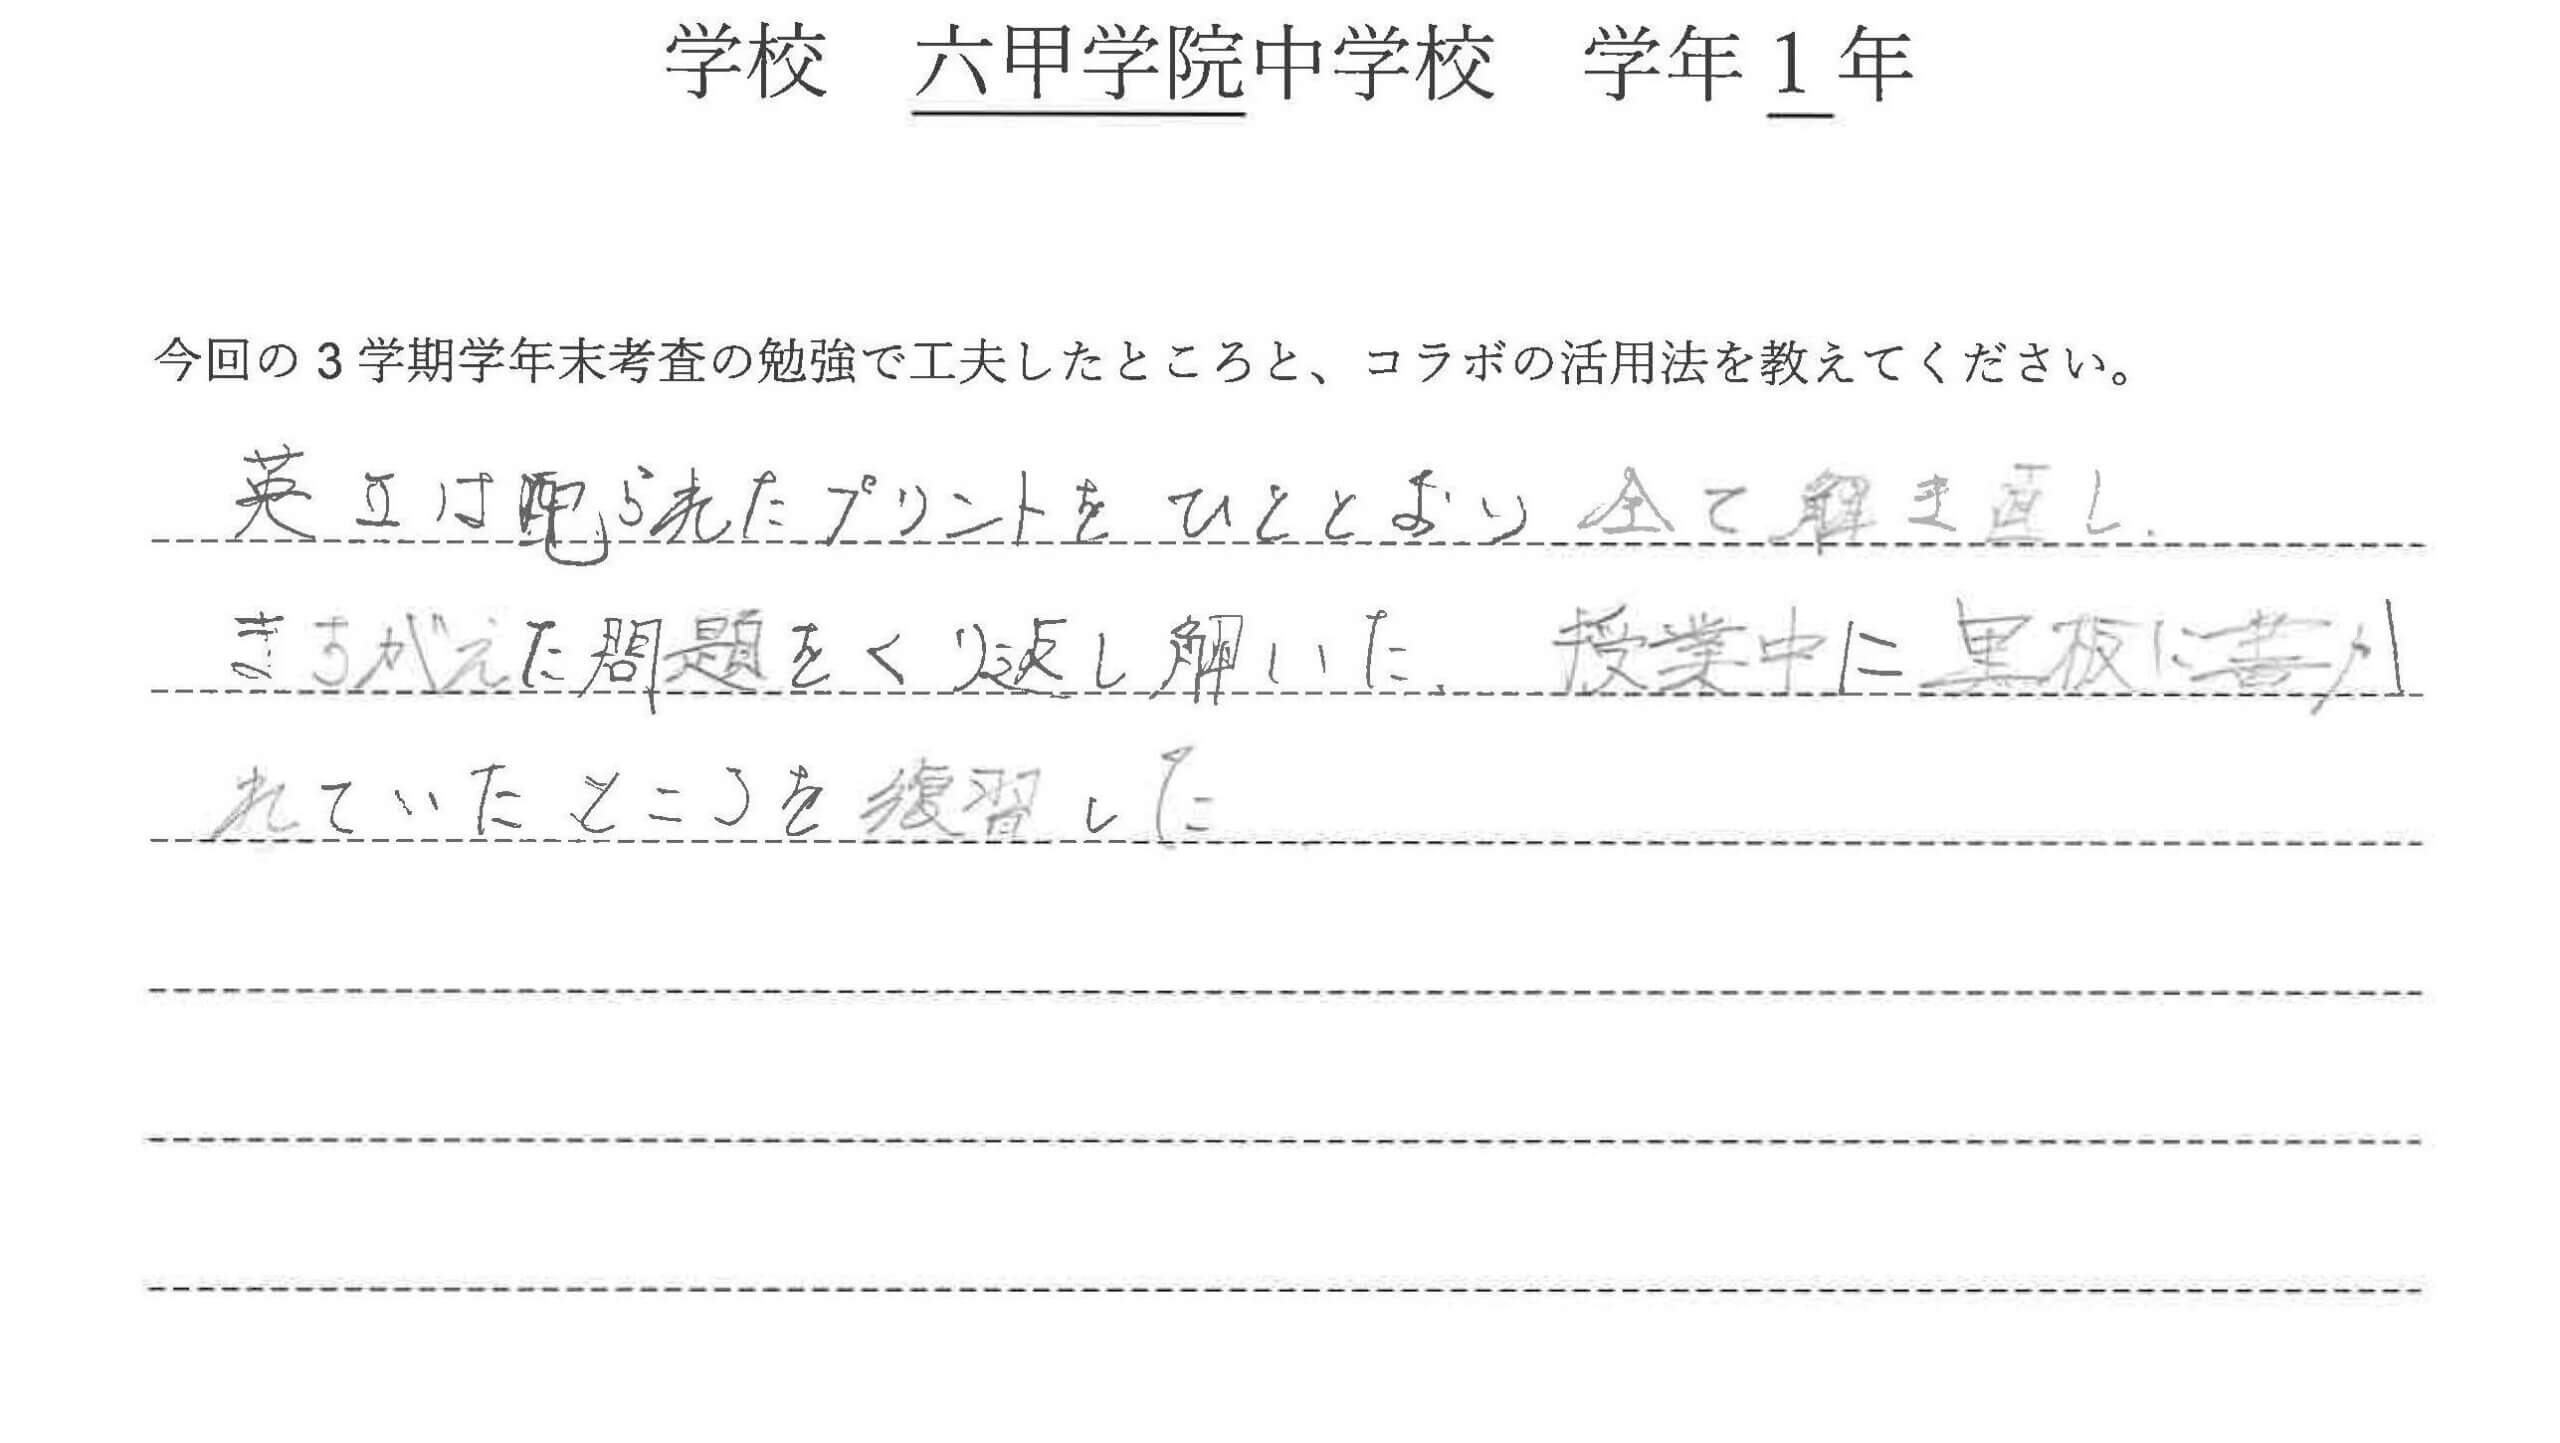 学校　六甲学院中学校　学年 1 年
今回の 3 学期学年末考査の勉強で工夫したところと、コラボの活用法を教えてください。
英立は配られたプリントをひととおり全て解き直し、
まちがえた問題をくり返し解いた。授業中に黒板に書か
れていたところを復習した